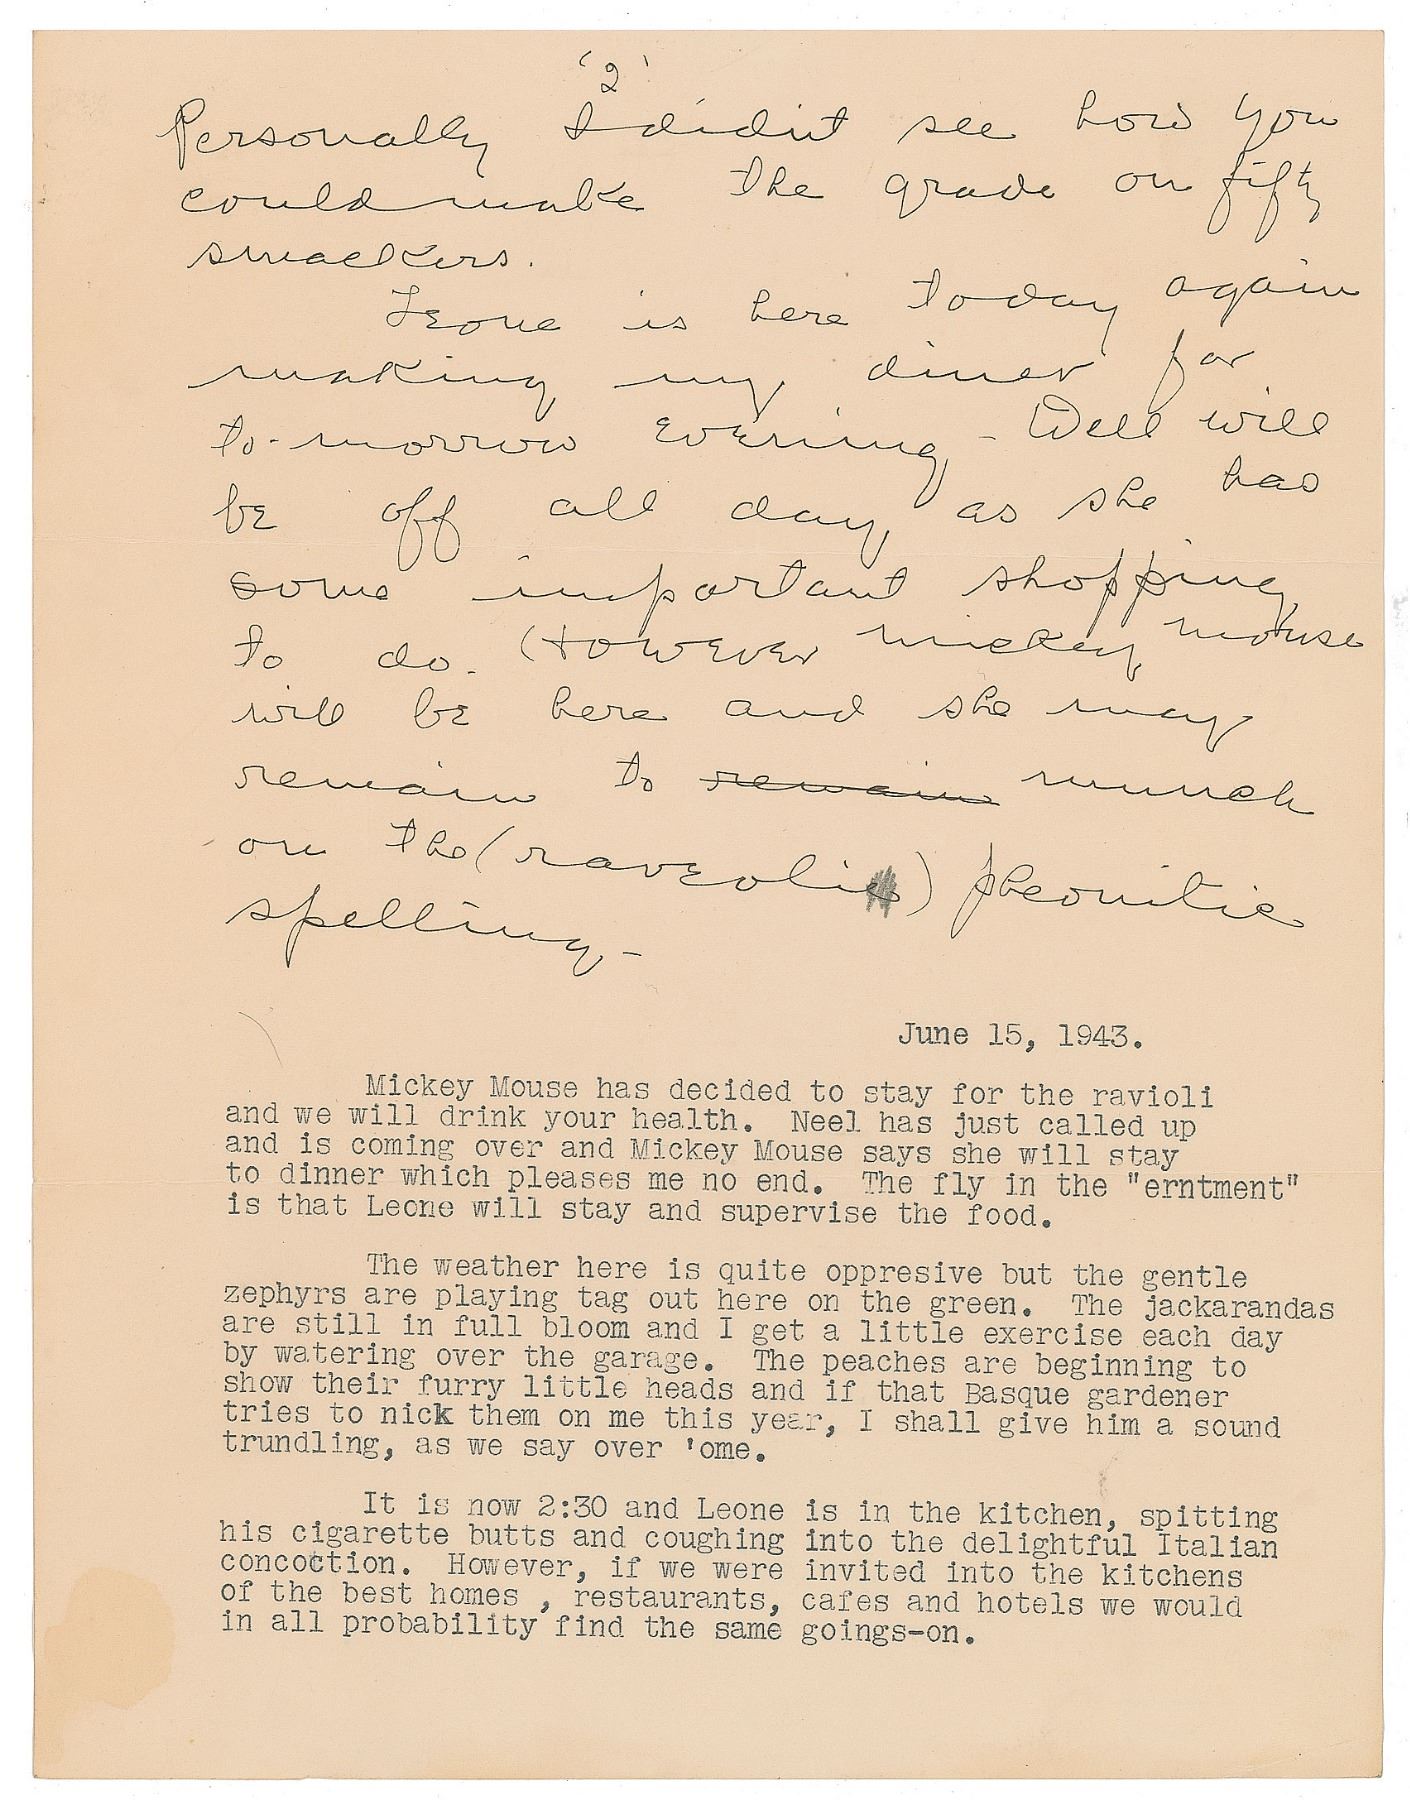 '2'
Personally I didn't see how you
could make the grade on fifty
smackers.
Leone is here today again
making my diner for
to-morrow evening - Dell will
be off all day, as she has
some important shopping
to do. (However Mickey Mouse
will be here and she may
remain to remain munch
on the (raveolie) pheonitic
spelling -
June 15, 1943.
Mickey Mouse has decided to stay for the ravioli
and we will drink your health. Neel has just called up
and is coming over and Mickey Mouse says she will stay
to dinner which pleases me no end. The fly in the "erntment"
is that Leone will stay and supervise the food.
The weather here is quite oppresive but the gentle
zephyrs are playing tag out here on the green. The jackarandas
are still in full bloom and I get a little exercise each day
by watering over the garage. The peaches are beginning to
show their furry little heads and if that Basque gardener
tries to nick them on me this year, I shall give him a sound
trundling, as we say over 'ome.
It is now 2:30 and Leone is in the kitchen, spitting
his cigarette butts and coughing into the delightful Italian
concoction. However, if we were invited into the kitchens
of the best homes , restaurants, cafes and hotels we would
in all probability find the same goings-on.